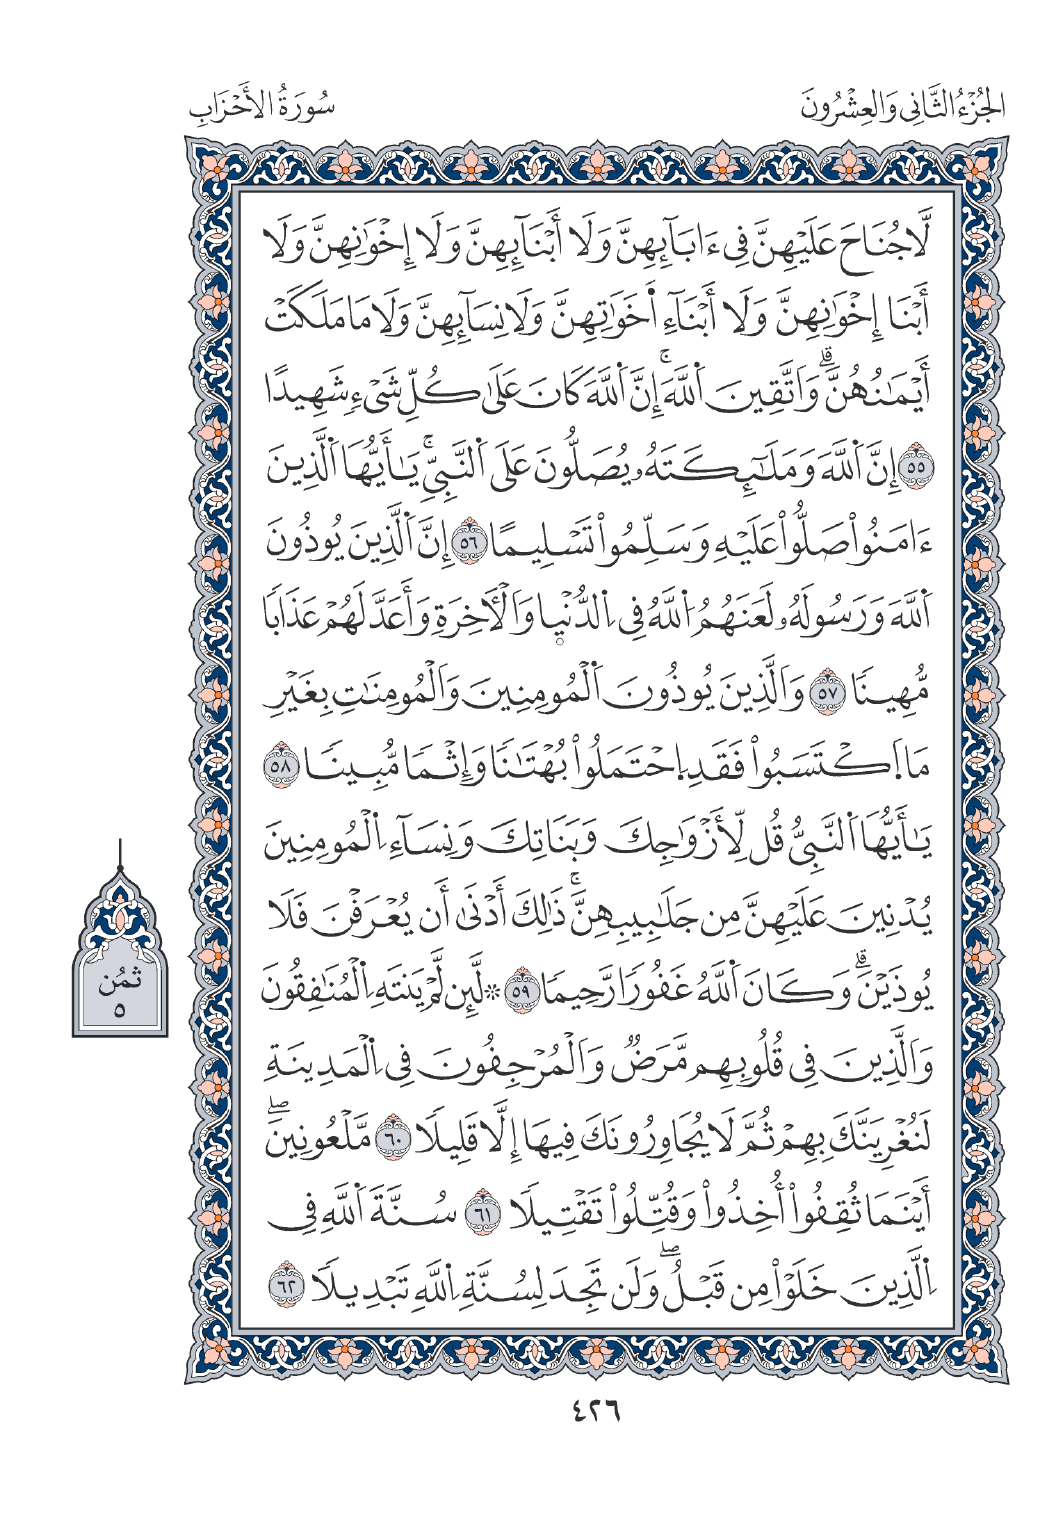 الجُزْءُ الثَّانِي وَالعِشْرُونَ
سُورَةُ الأَحْزَابِ
لَّا جُنَاحَ عَلَيْهِنَّ فِىٓ ءَابَآئِهِنَّ وَلَآ أَبْنَآئِهِنَّ وَلَآ إِخْوَٰنِهِنَّ وَلَآ
أَبْنَا إِخْوَٰنِهِنَّ وَلَآ أَبْنَآءِ اخَوَٰتِهِنَّ وَلَا نِسَآئِهِنَّ وَلَا مَا مَلَكَتْ
أَيْمَٰنُهُنَّۗ وَاتَّقِينَ اَللَّهَۚ إِنَّ اَللَّهَ كَانَ عَلَىٰ كُلِّ شَىْءٍ شَهِيدًا
٥٥ إِنَّ اَللَّهَ وَمَلَٰٓئِكَتَهُۥ يُصَلُّونَ عَلَى اَلنَّبِيِّۚ يَٰٓأَيُّهَا اَلَّذِينَ
ءَامَنُواْ صَلُّواْ عَلَيْهِ وَسَلِّمُواْ تَسْلِيمًا ٥٦ إِنَّ اَلَّذِينَ يُوذُونَ
اَللَّهَ وَرَسُولَهُۥ لَعَنَهُمُ اُللَّهُ فِى اِلدُّنْيٜا وَالَاخِرَةِ وَأَعَدَّ لَهُمْ عَذَابًا
مُّهِينًا ٥٧ وَالَّذِينَ يُوذُونَ اَلْمُومِنِينَ وَالْمُومِنَٰتِ بِغَيْرِ
مَا اَكْتَسَبُواْ فَقَدِ اِحْتَمَلُواْ بُهْتَٰنًا وَإِثْمًا مُّبِينًا ٥٨
يَٰٓأَيُّهَا اَلنَّبِيُّ قُل لِّأَزْوَٰجِكَ وَبَنَاتِكَ وَنِسَآءِ اِلْمُومِنِينَ
يُدْنِينَ عَلَيْهِنَّ مِن جَلَٰبِيبِهِنَّۚ ذَٰلِكَ أَدْنَىٰٓ أَن يُعْرَفْنَ فَلَا
يُوذَيْنَۗ وَكَانَ اَللَّهُ غَفُورًا رَّحِيمًا ٥٩ ۞ لَّئِن لَّمْ يَنتَهِ اِلْمُنَٰفِقُونَ
وَالَّذِينَ فِى قُلُوبِهِم مَّرَضٌ وَالْمُرْجِفُونَ فِى اِلْمَدِينَةِ
لَنُغْرِيَنَّكَ بِهِمْ ثُمَّ لَا يُجَاوِرُونَكَ فِيهَآ إِلَّا قَلِيلًا ٦٠ مَّلْعُونِينَۖ
أَيْنَمَا ثُقِفُواْ أُخِذُواْ وَقُتِّلُواْ تَقْتِيلًا ٦١ سُنَّةَ اَللَّهِ فِى
اِلَّذِينَ خَلَوْاْ مِن قَبْلُۖ وَلَن تَجِدَ لِسُنَّةِ اِللَّهِ تَبْدِيلًا ٦٢
ثمُن
٥
٤٢٦